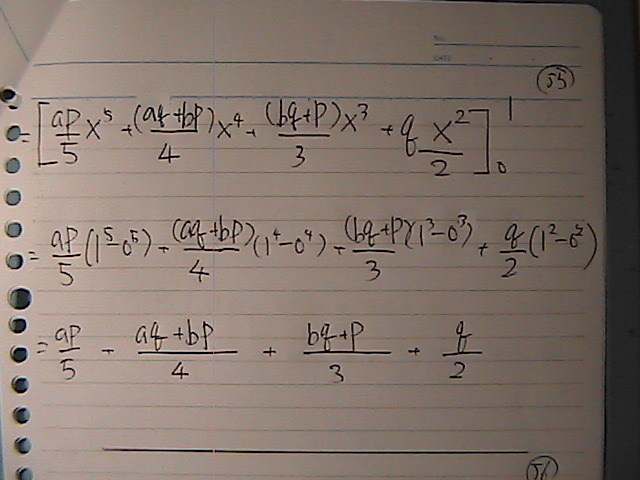 NO.
DATE
(55)
= [ap/5 x^5 + (aq+bp)/4 x^4 + (bq+p)/3 x^3 + q x^2/2]_0^1
= ap/5 (1^5-0^5) + (aq+bp)/4 (1^4-0^4) + (bq+p)/3 (1^3-0^3) + q/2 (1^2-0^2)
= ap/5 + (aq+bp)/4 + (bq+p)/3 + q/2
(56)